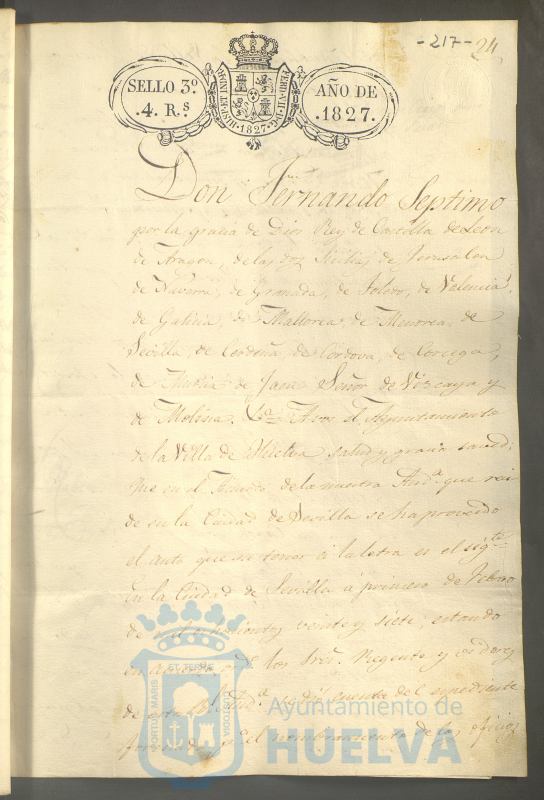 -217- 24
SELLO 3.º
.4. R.s
HISPAN.ET IND.REX
FERD.VII.D.G.
.1827.
AÑO DE
.1827.
Don Fernando Septimo
por la gracia de Dios Rey de Castilla de Leon
de Aragon, de las dos Sicilias, de Jerusalen
de Navarra, de Granada, de Toledo, de Valencia,
de Galicia, de Mallorca, de Menorca, de
Sevilla, de Cerdeña, de Cordova, de Corcega,
de Murcia de Jaen Señor de Vizcaya y
de Molina. &a A vos el Ayuntamiento
de la Villa de Huelva salud y gracia saved:
Que en el Acuerdo de la nuestra Aud.a que resi
de en la Ciudad de Sevilla se ha proveido
el auto que su tenor á la letra es el sig.te
En la Ciudad de Sevilla á primero de Febrero
de mil ochocientos veinte y siete, estando
en acuerdo los Sres. Regente y oidores
de esta R.l Aud.a se dió cuenta del expediente
formado p.a el nombramiento de los oficios
PORTUS MARIS
ET TERRE
CUSTODIA
Ayuntamiento de
HUELVA